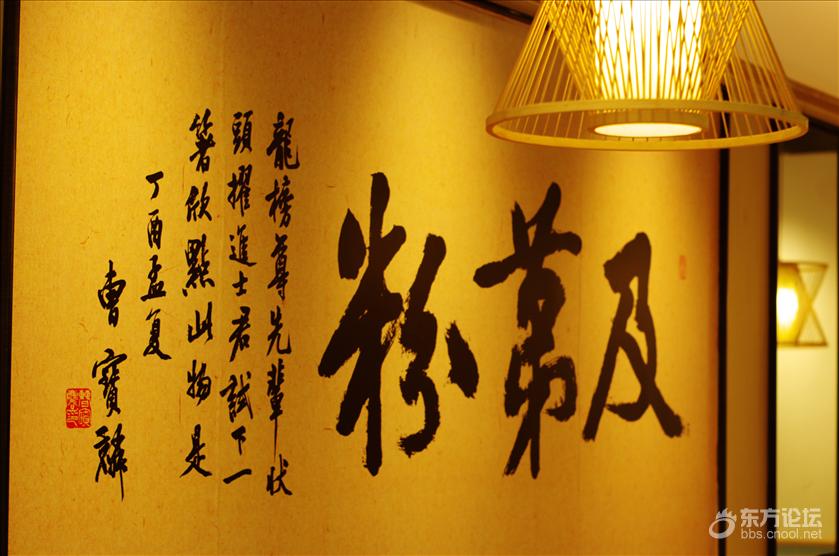 及第粉
龍榜尊先輩狀
頭擢進士君試下一
箸欽點此物是
丁酉孟夏
曹寶麟
东方论坛
bbs.cnool.net